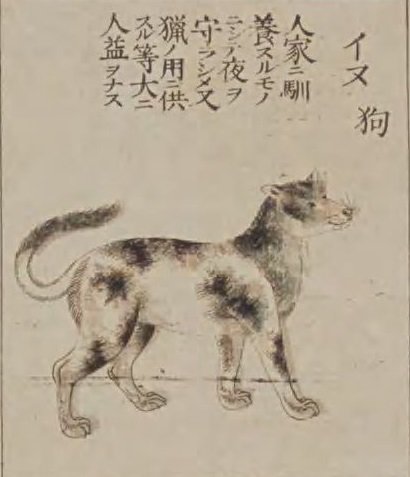 イヌ
狗
人家ニ馴
養スルモノ
ニシテ夜ヲ
守ラシメ又
猟ノ用ニ供
スル等大ニ
人益ヲナス